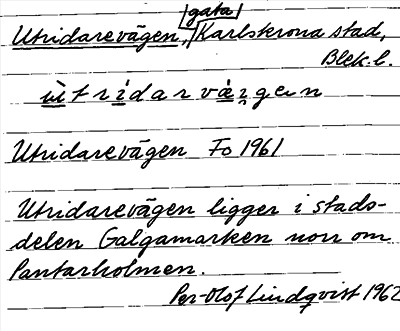 gata
Utridarevägen, Karlskrona stad,
Blek. l.
ùtridarvägen
Utridarevägen Fo 1961
Utridarevägen ligger i stads-
delen Galgamarken norr om
Pantarholmen.
Per-Olof Lindqvist 1962